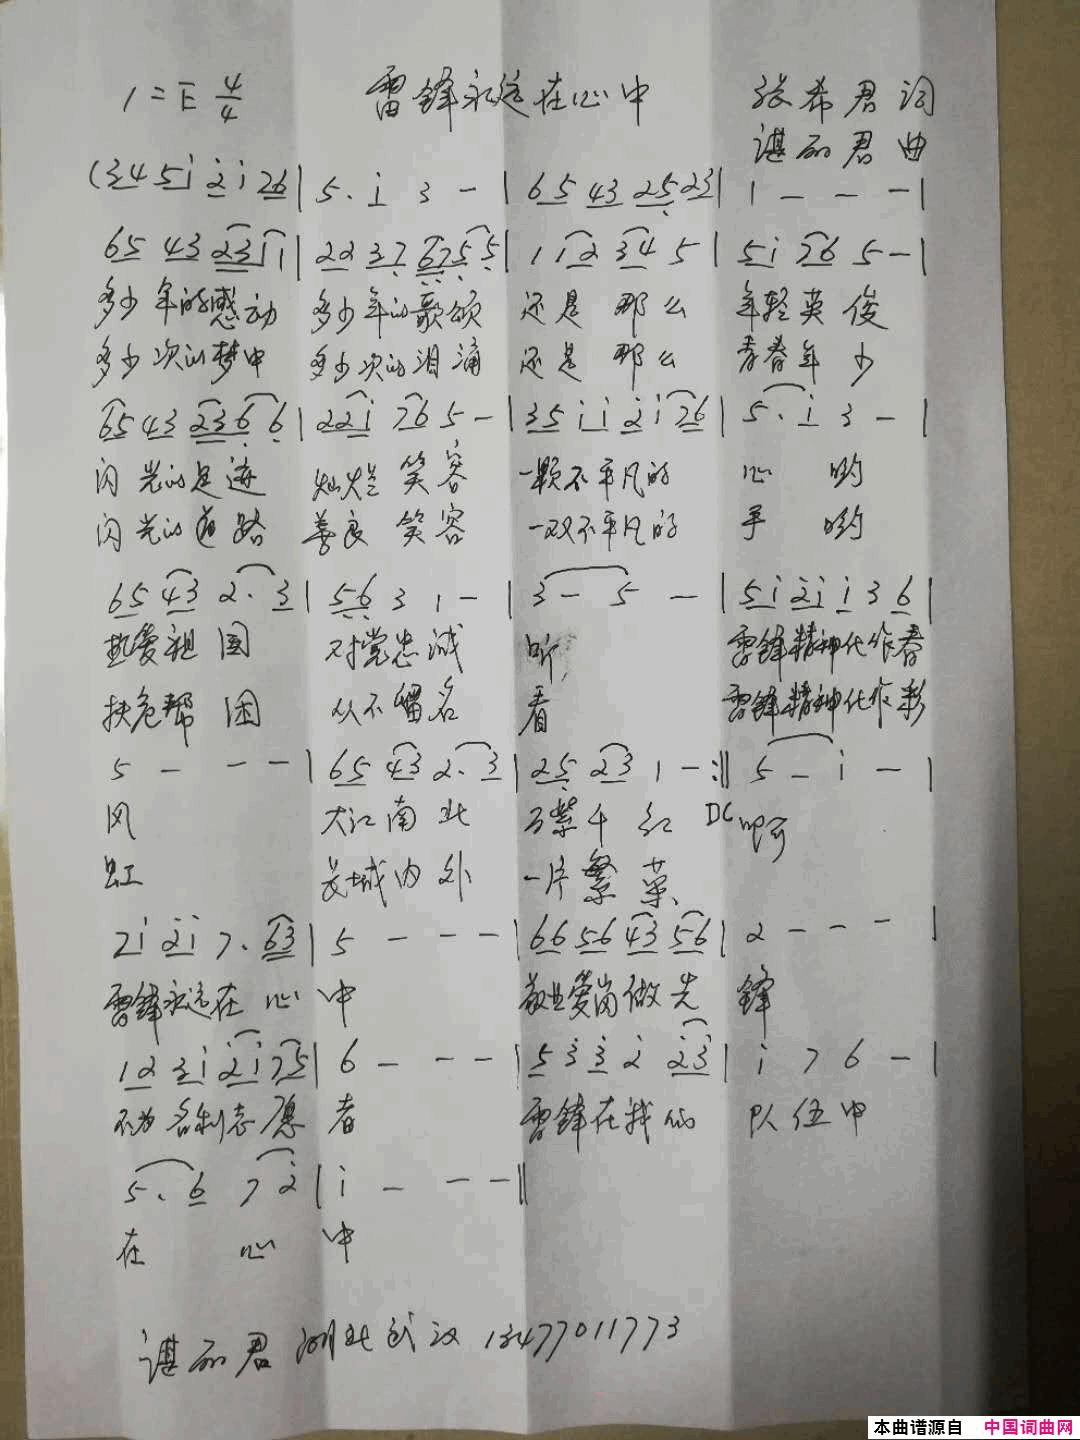 1=E 4/4 雷锋永远在心中 张希君词
谌丽君曲
(34 5i 2 i 26 | 5. i 3 - | 65 43 25 23 | 1 - - - |
65 43 2311 | 22 37 6755 | 1 12 34 5 | 5i 76 5 - |
多少年的感动 多少年的歌颂 还是那么 年轻英俊
多少次的梦中 多少次的泪涌 还是那么 青春年少
65 43 2366 | 22i 76 5 - | 35 ii 2i 76 | 5. i 3 - |
闪光的足迹 灿烂笑容 一颗不平凡的 心哟
闪光的道路 善良笑容 一双不平凡的 手哟
65 43 2. 3 | 56 3 1 - | 3 - 5 - | 5i 2i i 3 6 |
热爱祖国 对党忠诚 听 雷锋精神化作春
扶危帮困 从不留名 看 雷锋精神化作彩
5 - - - | 65 43 2. 3 | 25 23 1 - :|| 5 - i - |
风 大江南北 万紫千红 DC 啊
虹 长城内外 一片繁荣
7i 2i 7. 63 | 5 - - - | 66 56 43 56 | 2 - - - |
雷锋永远在心中 敬业爱岗做先锋
12 3i 2i 75 | 6 - - - | 5 3 3 2 23 | i 7 6 - |
不为名利志愿者 雷锋在我们 队伍中
5. 6 7 2 | i - - - ||
在心中
谌丽君 湖北武汉 13477011773
本曲谱源自 中国词曲网